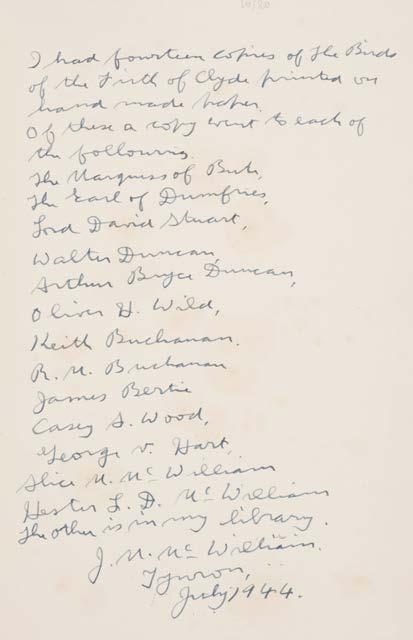 10/80
I had fourteen copies of the Birds
of the Firth of Clyde printed on
hand made paper.
Of these a copy went to each of
the following.
The Marquess of Bute,
The Earl of Dumfries,
Lord David Stuart,
Walter Duncan,
Arthur Bryce Duncan,
Oliver H. Wild,
Keith Buchanan.
R. M. Buchanan
James Bertie
Casey A. Wood,
George V. Hart,
Alice M. Mc William
Hester L. D. Mc William
The other is in my library.
J. M. Mc William.
Tynron,
July 1944.